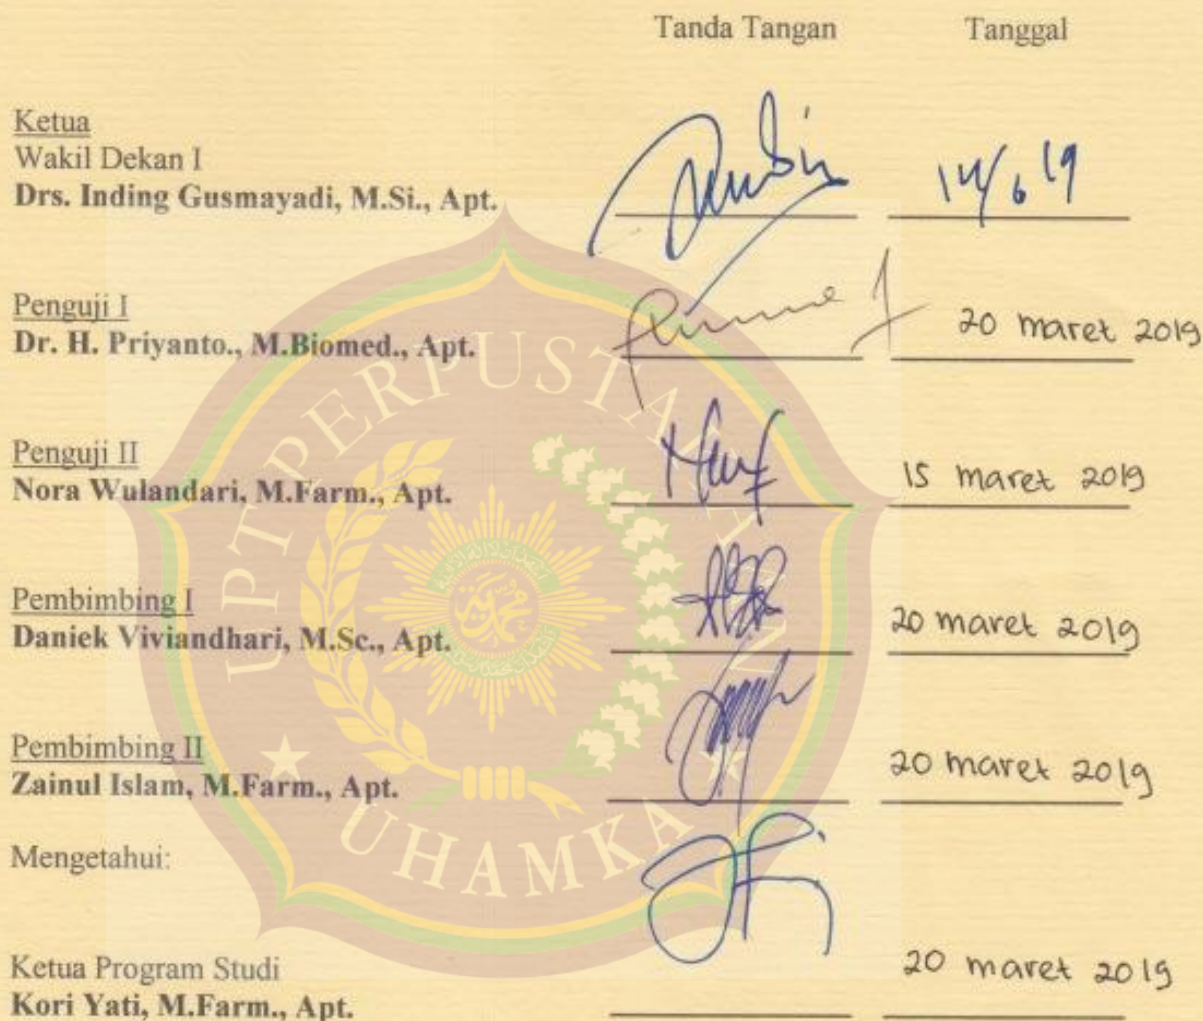 Tanda Tangan Tanggal
Ketua
Wakil Dekan I
Drs. Inding Gusmayadi, M.Si., Apt.
14/6 19
Penguji I
Dr. H. Priyanto., M.Biomed., Apt.
20 maret 2019
Penguji II
Nora Wulandari, M.Farm., Apt.
15 maret 2019
Pembimbing I
Daniek Viviandhari, M.Sc., Apt.
20 maret 2019
Pembimbing II
Zainul Islam, M.Farm., Apt.
20 maret 2019
Mengetahui:
Ketua Program Studi
Kori Yati, M.Farm., Apt.
20 maret 2019
UPT PERPUSTAKAAN
UHAMKA